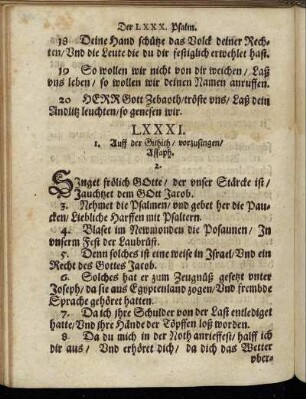 Der LXXX. Psalm.
18 Deine Hand schütze das Volck deiner Rech-
ten/Vnd die Leute die du dir festiglich erwehlet hast.
19 So wollen wir nicht von dir weichen/ Laß
vns leben/ so wollen wir deinen Namen anruffen.
20 HERR Gott Zebaoth/tröste vns/ Laß dein
Andlitz leuchten/so genesen wir.
LXXXI.
1. Auff der Githith/ vorzusingen/
Assaph.
2.
SInget frölich GOtte/ der vnser Stärcke ist/
Jauchtzet dem GOtt Jacob.
3. Nehmet die Psalmen/ vnd gebet her die Pau-
cken/ Liebliche Harffen mit Psaltern.
4. Blaset im Newmonden die Posaunen/ In
vnserm Fest der Laubrüst.
5. Denn solches ist eine weise in Israel/Vnd ein
Recht des Gottes Jacob.
6. Solches hat er zum Zeugnüß gesetzt vnter
Joseph/ da sie aus Egyptenland zogen/Vnd frembde
Sprache gehöret hatten.
7. Da ich jhre Schulder von der Last entlediget
hatte/Vnd jhre Hände der Töpffen loß worden.
8 Da du mich in der Noth anrieffest/ halff ich
dir aus/ Vnd erhöret dich/ da dich das Wetter
vber-